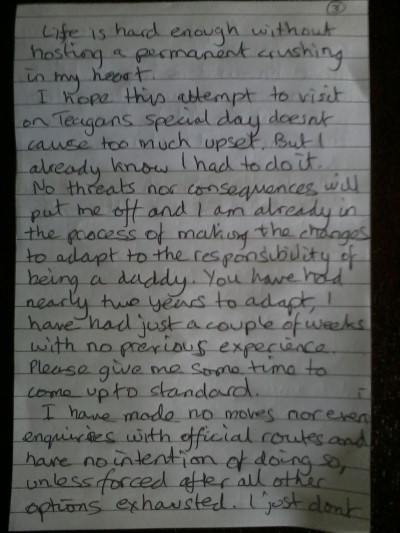 3
Life is hard enough without
hosting a permanent crushing
in my heart.
I hope this attempt to visit
on Teagans special day doesnt
cause too much upset. But I
already know I had to do it.
No threats nor consequences will
put me off and I am already in
the process of making the changes
to adapt to the responsibility of
being a daddy. You have had
nearly two years to adapt, I
have had just a couple of weeks
with no previous experience.
Please give me some time to
come up to standard.
I have made no moves nor even
enquiries with official routes and
have no intention of doing so,
unless forced after all other
options exhausted. I just dont